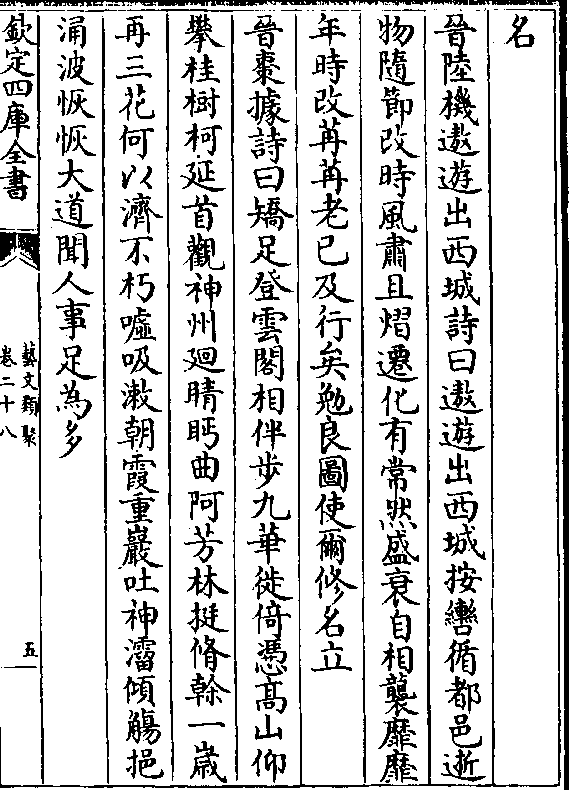 名
晉陸機遨遊出西城詩曰遨遊出西城按轡循都邑逝
物隨節改時風肅且熠遷化有常然盛衰自相襲靡靡
年時改苒苒老已及行矣勉良圖使爾修名立
晉棗據詩曰矯足登雲閣相伴步九華徙倚憑高山仰
攀桂樹柯延首觀神州廻睛眄曲阿芳林挺脩榦一歲
再三花何以濟不朽嘘吸漱朝霞重巖吐神溜傾觴挹
涌波恢恢大道聞人事足為多
欽定四庫全書
藝文類聚
卷二十八
五